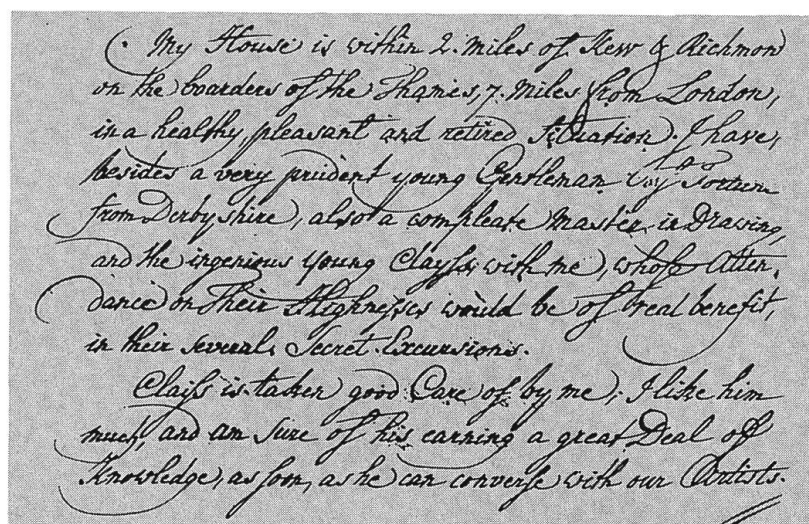 My House is within 2. Miles of Kew & Richmon
on the boarders of the Thames, 7. Miles from London,
in a healthy, pleasant and retired Situation. I have,
besides a very prudent young Gentleman
from Derbyshire, also a compleate Master in Drawing,
and the ingenious young Clayss with me, whose Atten-
dance on Their Highnesses would be of real benefit,
in their several Secret Excursions.
Claiss is taken good Care of by me, I like him
much, and am sure of his earning a great Deal of
Knowledge, as soon, as he can converse with our Artists.